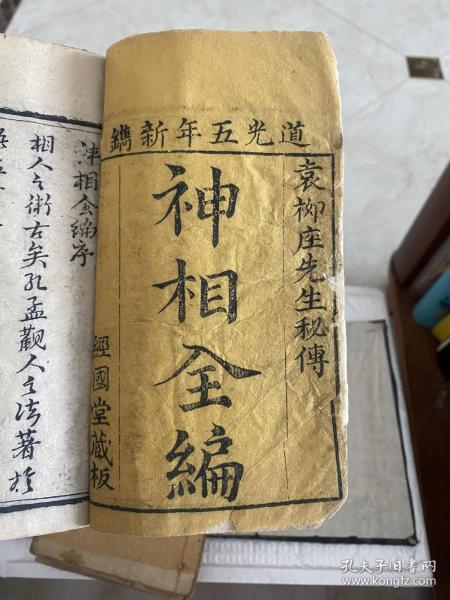 道光五年新鐫
袁柳庄先生秘傳
神相全編
經國堂藏板
神相全編序
相人之術古矣孔孟觀人之法著於
孔夫子旧书网
www.kongfz.com